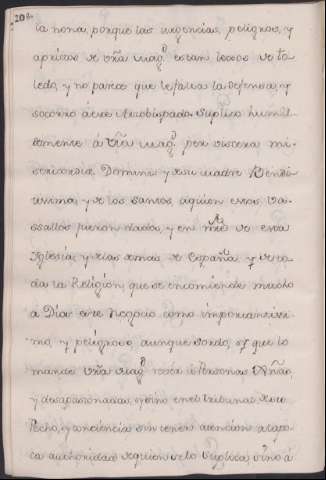 208.
la nona, porque las urgencias, peligros, y
aprietos de vrã Magd. estan lexos de To-
ledo, y no parece que le falta la defensa, y
socorro à ese Arzobispado. Suplico humil-
demente à Vrã Magd. per viscera mi-
sericordia Domini, y de su Madre Bendi-
tissima, y de los santos à quien esos Va-
ssallos fueron dados, y en nrẽ de esa
Iglesia, y de las demas de España, y de to-
da la Religion, que se encomiende mucho
à Dios este Negocio como importantissi-
mo, y peligroso, aunque sordo, y que lo
mande vrã Magd. ver à Personas
y desapasionadas, y sino en el tribunal de su
Pecho, y conciencia sin tener atencion à la po-
ca authoridad de quien se lo suplica, sino à